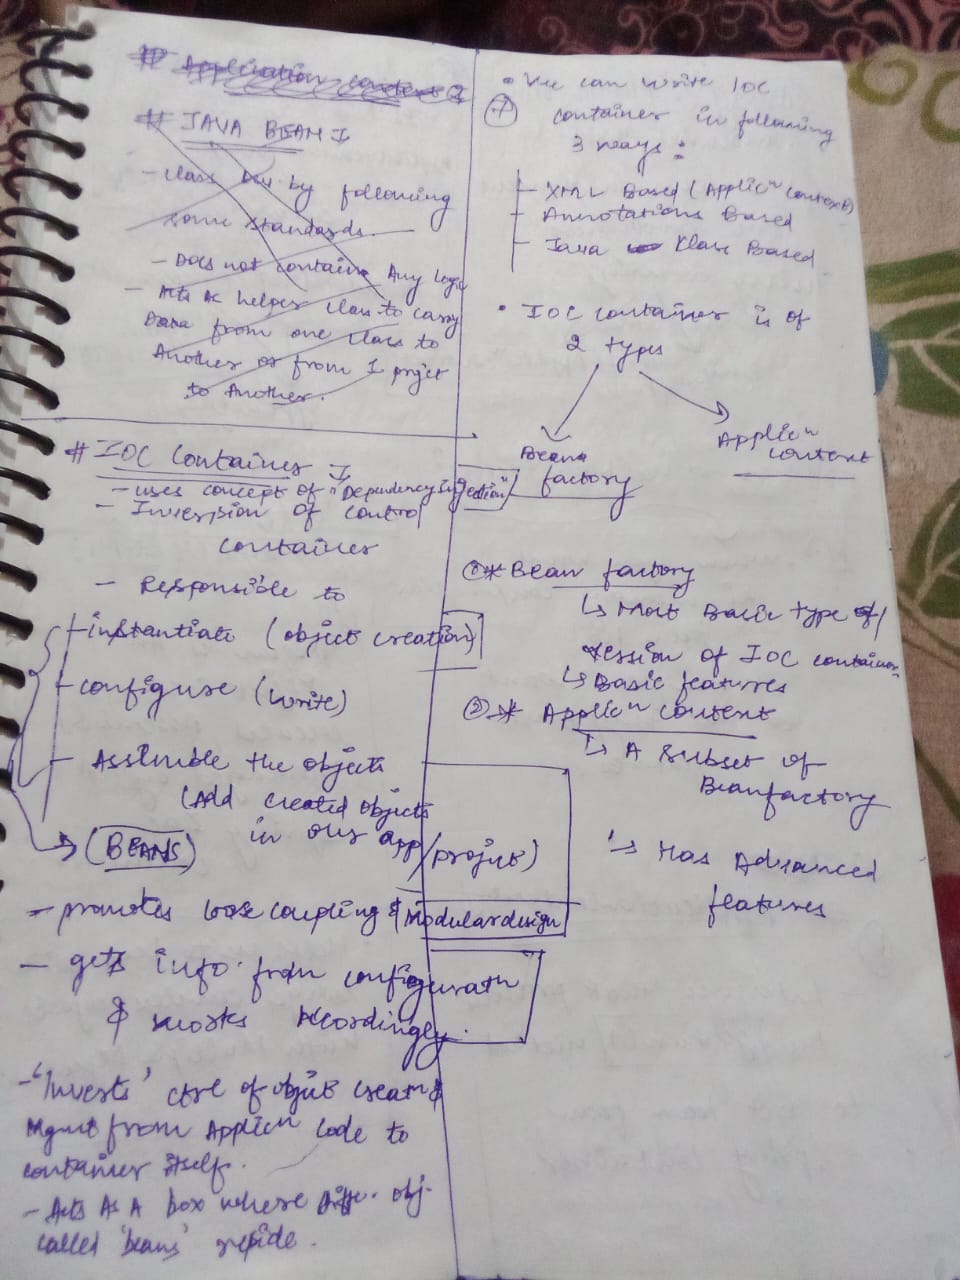 # JAVA BEAN I
- class by following
some standards.
- Does not contain Any logic
- Acts As helper class to carry
Data from one class to
Another or from 1 projct
to Another.
# IOC Container I
- uses concept of "Dependency Injection"
- Inversion of control
container
- Responsible to
- instantiate (object creation)
- configure (write)
- Assemble the objects
(Add created objects
in our app/project)
(BEANS)
- promotes loose coupling & Modular design
- gets info. from configuratn
& works Accordingly.
- 'Inverts' ctrl of objct creatn &
Mgmt from Applicn Code to
container itself.
- Acts As A box where diff. obj.
called 'beans' reside.
• We can write IOC
(7) container in following
3 ways :
- XML Based (Applicn context)
- Annotations Based
- Java Class Based
• IOC container is of
2 types
Beans factory
Applicn context
①* Bean factory
↳ Most Basic type of/
version of IOC container
↳ Basic features
②→* Applicn context
↳ A subset of
Beanfactory
↳ Has Advanced
features